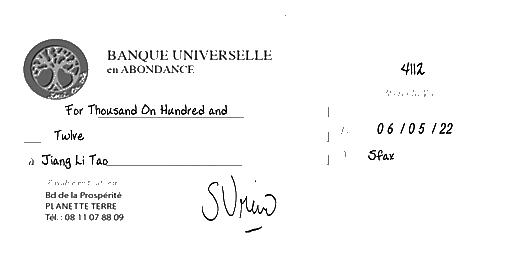 BANQUE UNIVERSELLE
en ABONDANCE
4112
For Thousand On Hundred and
Twlve
06/05/22
à Jiang Li Tao
Sfax
Bd de la Prospérité
PLANETTE TERRE
Tél. : 08 11 07 88 09